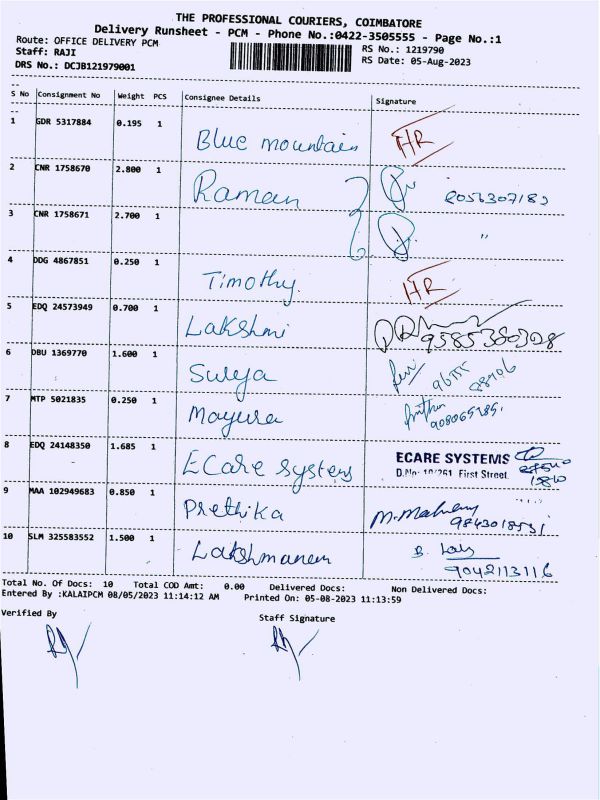 THE PROFESSIONAL COURIERS, COIMBATORE
Delivery Runsheet - PCM - Phone No.:0422-3505555 - Page No.:1
Route: OFFICE DELIVERY PCM
RS No.: 1219790
Staff: RAJI
RS Date: 05-Aug-2023
DRS No.: DCJB121979001
S No Consignment No Weight PCS Consignee Details Signature
1 GDR 5317884 0.195 1 Blue mountain HR
2 CNR 1758670 2.800 1 Raman 8056307182
3 CNR 1758671 2.700 1 "
4 DDG 4867851 0.250 1 Timothy. HR
5 EDQ 24573949 0.700 1 Lakshmi 9585360328
6 DBU 1369770 1.600 1 Surya
7 MTP 5021835 0.250 1 Mayura
8 EDQ 24148350 1.685 1 ECare Systems ECARE SYSTEMS
D.No: 10/261 First Street
9 MAA 102949683 0.850 1 Prethika
9843018531
10 SLM 325583552 1.500 1 Lakshmanan
9042113116
Total No. Of Docs: 10 Total COD Amt: 0.00 Delivered Docs: Non Delivered Docs:
Entered By :KALAIPCM 08/05/2023 11:14:12 AM Printed On: 05-08-2023 11:13:59
Verified By Staff Signature